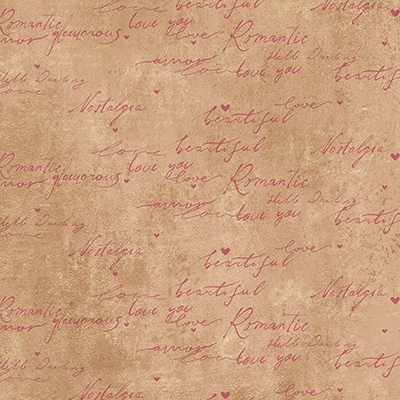 beautiful
love you
Romantic glamorous love Romantic
amor amor Hello Darling
love love you beautiful
Hello Darling
love
Nostalgia love
beautiful
love beautiful Nostalgia
Romantic love you
amor glamorous love Romantic
amor Hello Darling
Hello Darling love love you beautiful
Nostalgia love
beautiful
love beautiful Nostalgia
Romantic love you
amor glamorous love Romantic
amor Hello Darling
Hello Darling love love you beautiful
Nostalgia love
beautiful